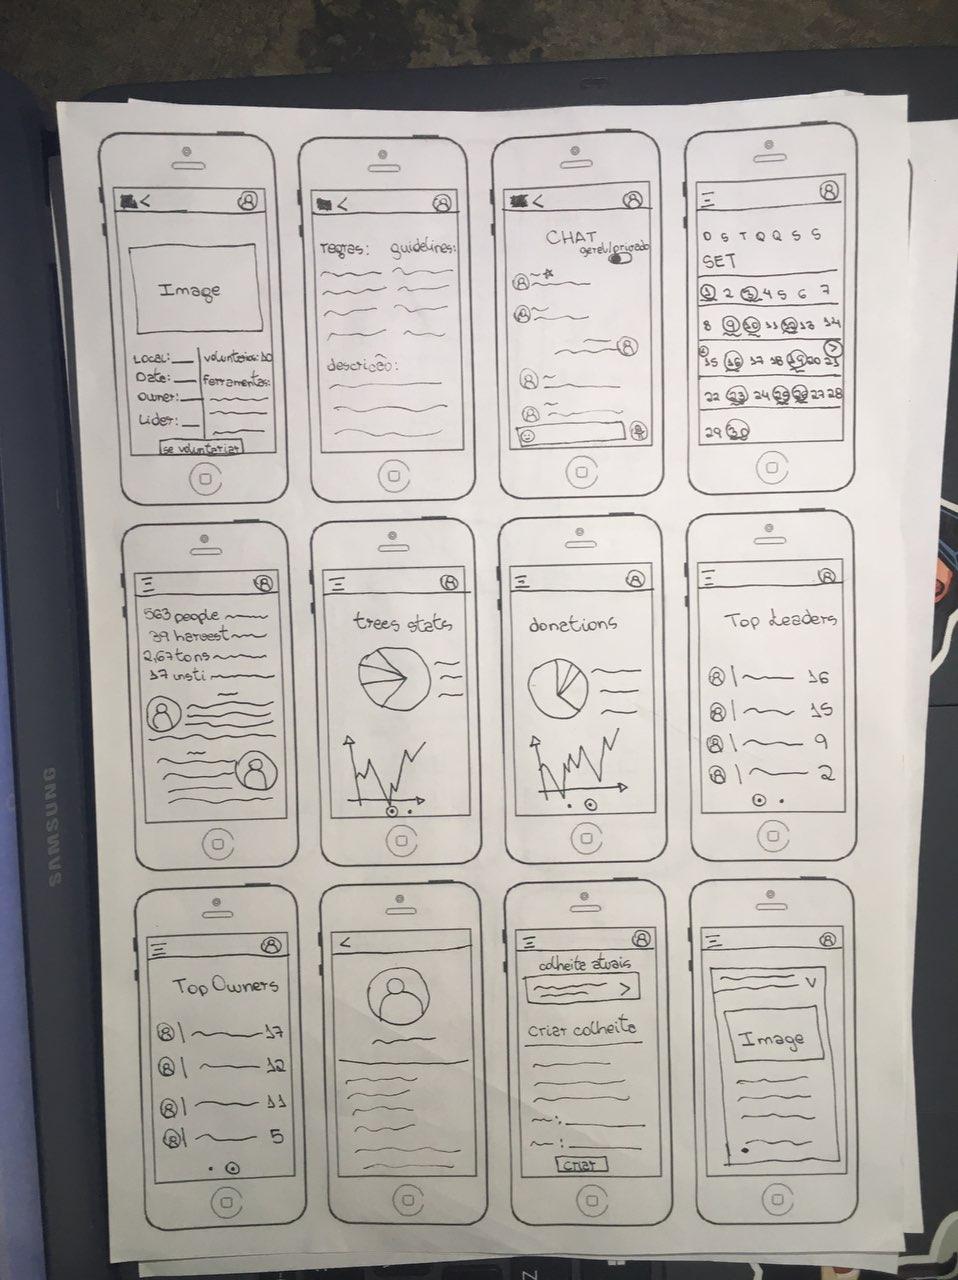 Image
Local:
Date:
Owner:
Lider:
voluntarios: 10
ferramentas:
se voluntariar
regras: guidelines:
descrição:
CHAT
geral/privado
D S T Q Q S S
SET
1 2 3 4 5 6 7
8 9 10 11 12 13 14
15 16 17 18 19 20 21
22 23 24 25 26 27 28
29 30
563 people
39 harvest
2,67 tons
17 insti
trees stats
donations
Top Leaders
16
15
9
2
Top Owners
17
12
11
5
colheite atuais
criar colheite
criar
Image
SAMSUNG
Z